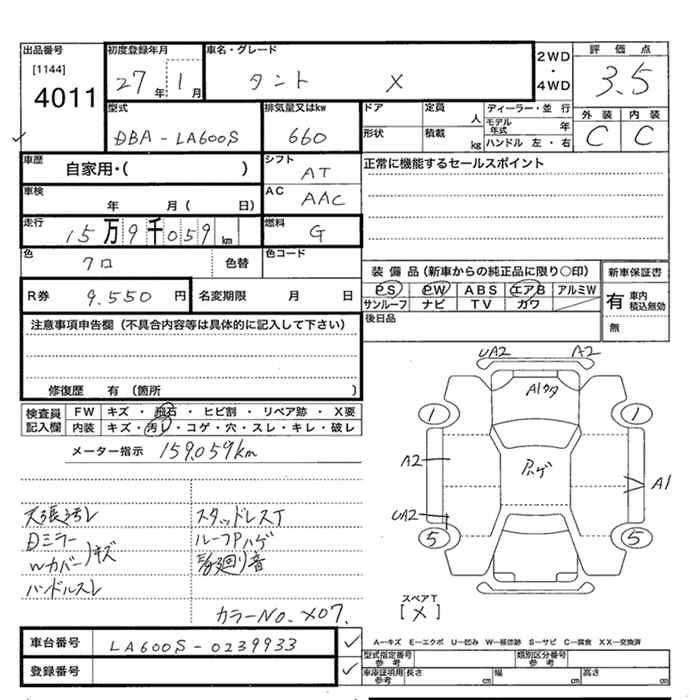 出品番号 [1144] 4011
初度登録年月 27年 1月
車名・グレード タント X
2WD・4WD
評価点 3.5
外装 C 内装 C
型式 DBA-LA600S
排気量又はkw 660
ドア 定員 人
形状 積載 kg
ディーラー・並行
モデル年式 年
ハンドル 左・右
車歴 自家用・( )
シフト AT
車検 年 月( 日)
AC AAC
走行 15万9千059km
燃料 G
色 クロ 色替
色コード
R券 9.550円 名変期限 月 日
正常に機能するセールスポイント
装備品(新車からの純正品に限り○印)
PS PW ABS エアB アルミW
サンルーフ ナビ TV カワ
新車保証書
有 車内積込無効
無
後日品
注意事項申告欄(不具合内容等は具体的に記入して下さい)
修復歴 有(箇所 )
検査員記入欄
FW キズ・飛石・ヒビ割・リペア跡・X要
内装 キズ・汚レ・コゲ・穴・スレ・キレ・破レ
メーター指示 159,059km
天張汚レ
Dミラー
Wカバー/キズ
ハンドルスレ
スタッドレスT
ルーフPハゲ
廻り音
カラーNO. X07.
UA2 A2
A1クタ
1 1
A2 Pハゲ A1
UA2
5 5
スペアT
[X]
A―キズ E―エクボ U―凹み W―補修跡 S―サビ C―腐食 XX―交換済
車台番号 LA600S-0239933
登録番号
型式指定番号 参考 類別区分番号 参考
車庫証明用 参考 長さ cm 幅 cm 高さ cm